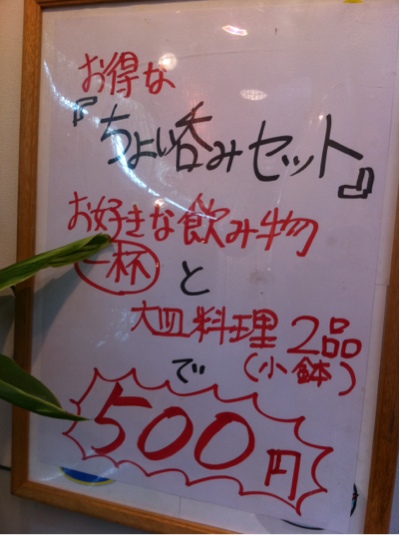 お得な
『ちょい呑みセット』
お好きな飲み物
一杯と
大皿料理2品
で(小鉢)
500円